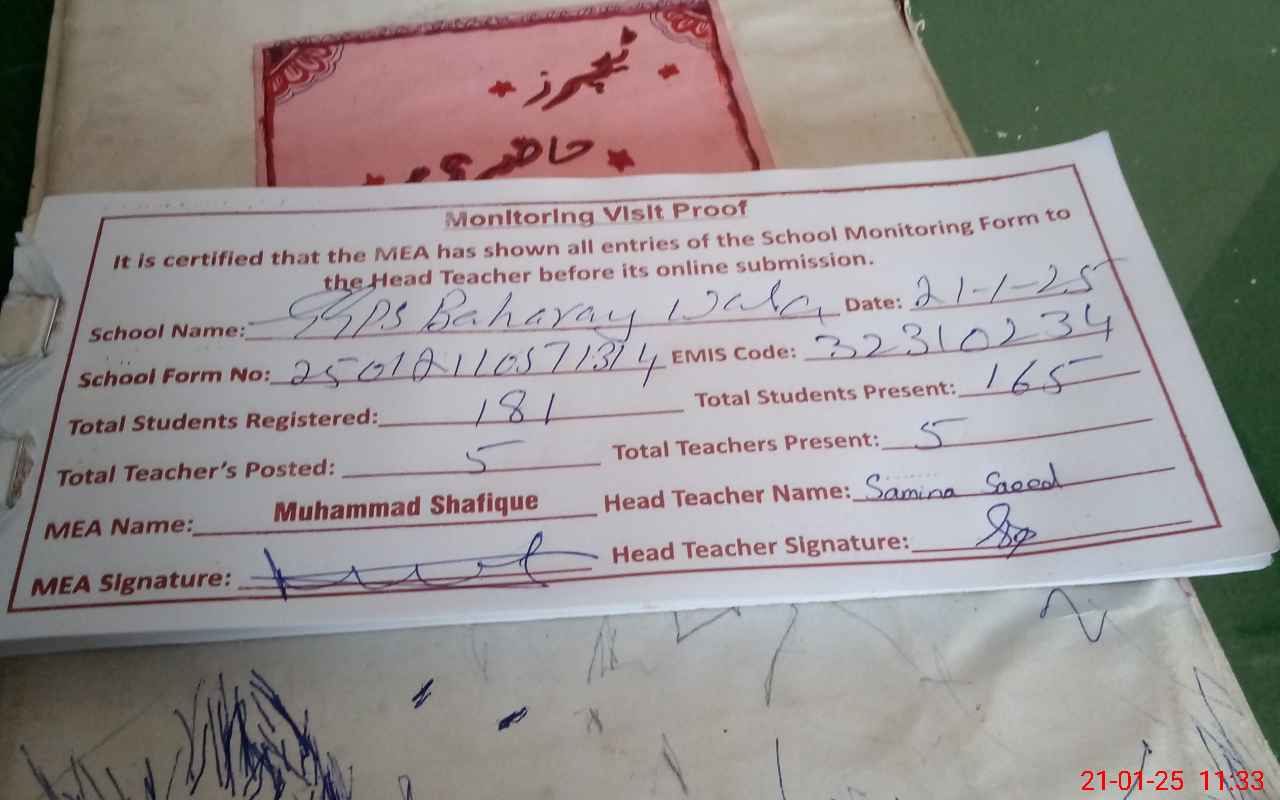 ٹیچرز
حاضری
Monitoring Visit Proof
It is certified that the MEA has shown all entries of the School Monitoring Form to
the Head Teacher before its online submission.
School Name: GGPS Baharay Wala Date: 21-1-25
School Form No: EMIS Code: 32310234
Total Students Registered: 181 Total Students Present: 165
Total Teacher's Posted: 5 Total Teachers Present: 5
MEA Name: Muhammad Shafique Head Teacher Name: Samina Saeed
MEA Signature: Head Teacher Signature:
21-01-25 11:33